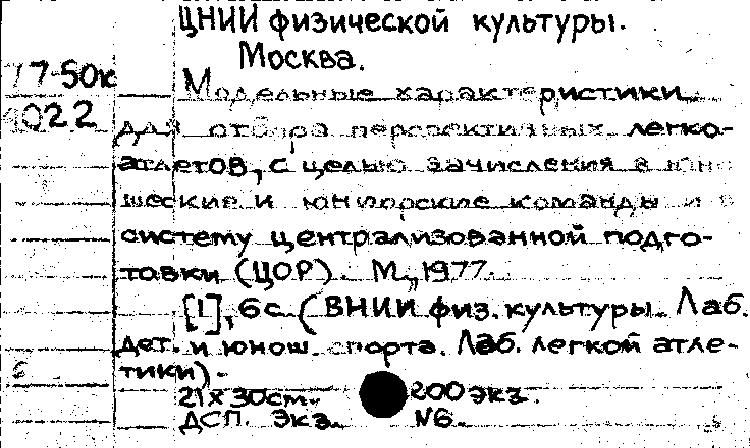 ЦНИИ физической культуры.
Москва.
77-50к Модельные характеристики
4022 для отбора перспективных легко-
атлетов, с целью зачисления в юно-
шеские и юниорские команды и в
систему централизованной подго-
товки (ЦОР). М., 1977.
[1], 6с. (ВНИИ физ. культуры. Лаб.
дет. и юнош. спорта. Лаб. легкой атле-
тики).
21х30cm. 200 экз.
ДСП. Экз. №6.